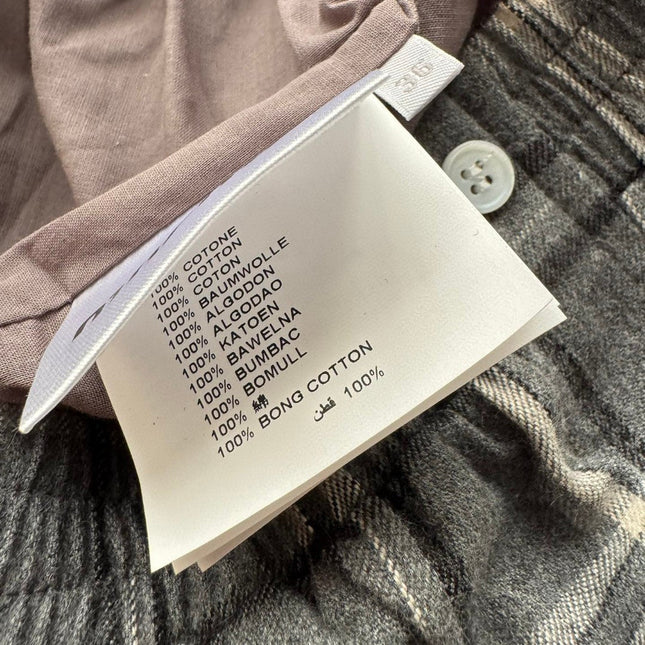 36
100% COTONE
100% COTTON
100% COTON
100% BAUMWOLLE
100% ALGODON
100% ALGODAO
100% KATOEN
100% BAWELNA
100% BUMBAC
100% BOMULL
100% 綿
100% BONG COTTON
قطن 100%